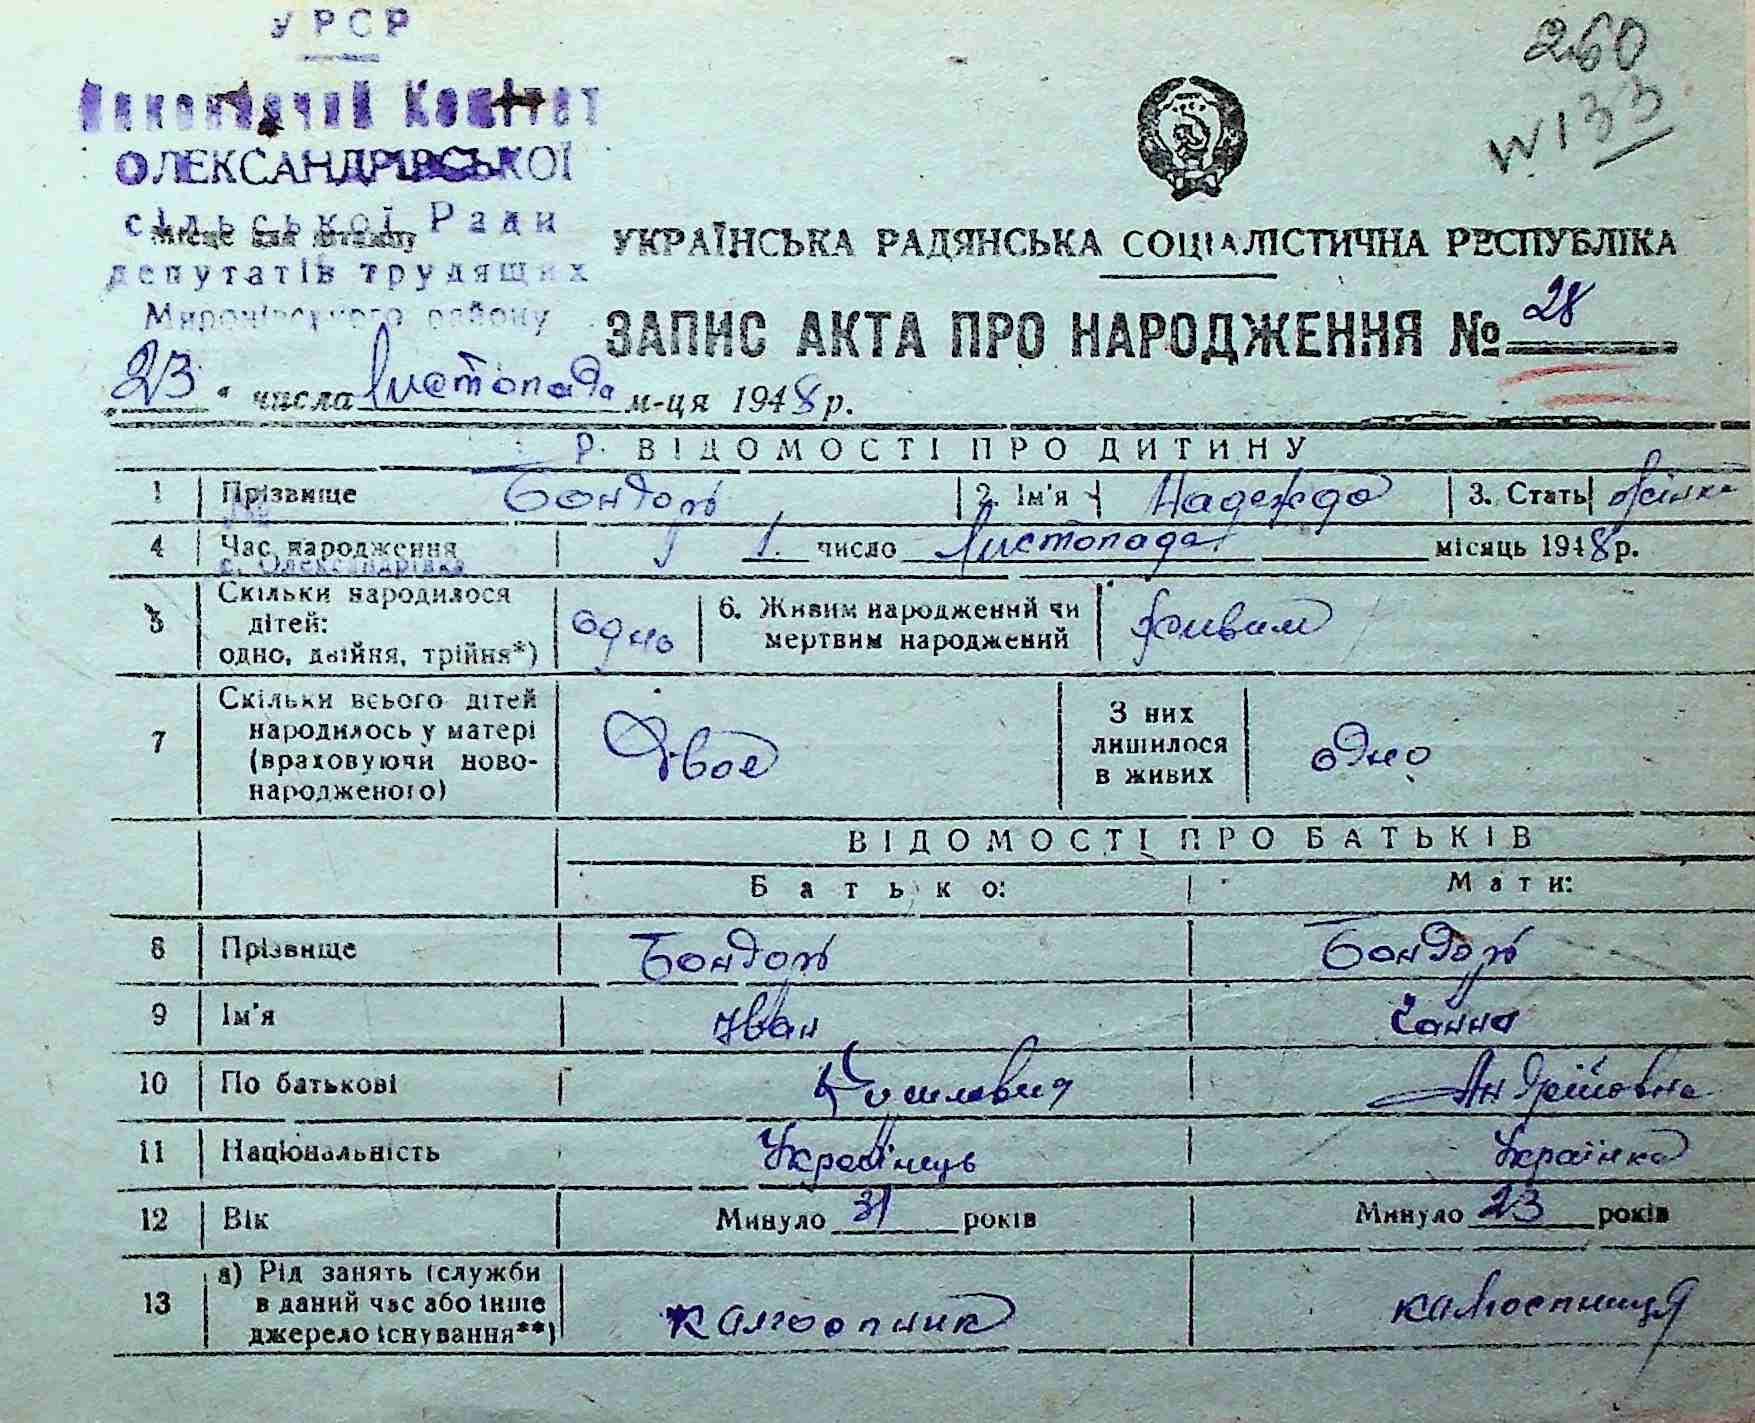 УРСР
260
Виконавчий Комітет
W133
ОЛЕКСАНДРІВСЬКОЇ
сільської Ради
Місце для штампу
УКРАЇНСЬКА РАДЯНСЬКА СОЦІАЛІСТИЧНА РЕСПУБЛІКА
депутатів трудящих
Миронівського району
ЗАПИС АКТА ПРО НАРОДЖЕННЯ № 28
"23" числа Листопада м-ця 1948 р.
ВІДОМОСТІ ПРО ДИТИНУ
1 Прізвище Бондарь 2. Ім'я Надежда 3. Стать Жінка
4 Час народження 1 число Листопада місяць 1948 р.
с. Олександрівка
5 Скільки народилося дітей: одно, двійня, трійня*) одно 6. Живим народжений чи мертвим народжений Живим
7 Скільки всього дітей народилось у матері (враховуючи ново-народженого) Двоє З них лишилося в живих одно
ВІДОМОСТІ ПРО БАТЬКІВ
Батько: Мати:
8 Прізвище Бондарь Бондарь
9 Ім'я Іван Ганна
10 По батькові Андрійовна
11 Національність Українець Українка
12 Вік Минуло 31 років Минуло 23 років
13 а) Рід занять (служби в даний час або інше джерело існування**) колгоспник колгоспниця